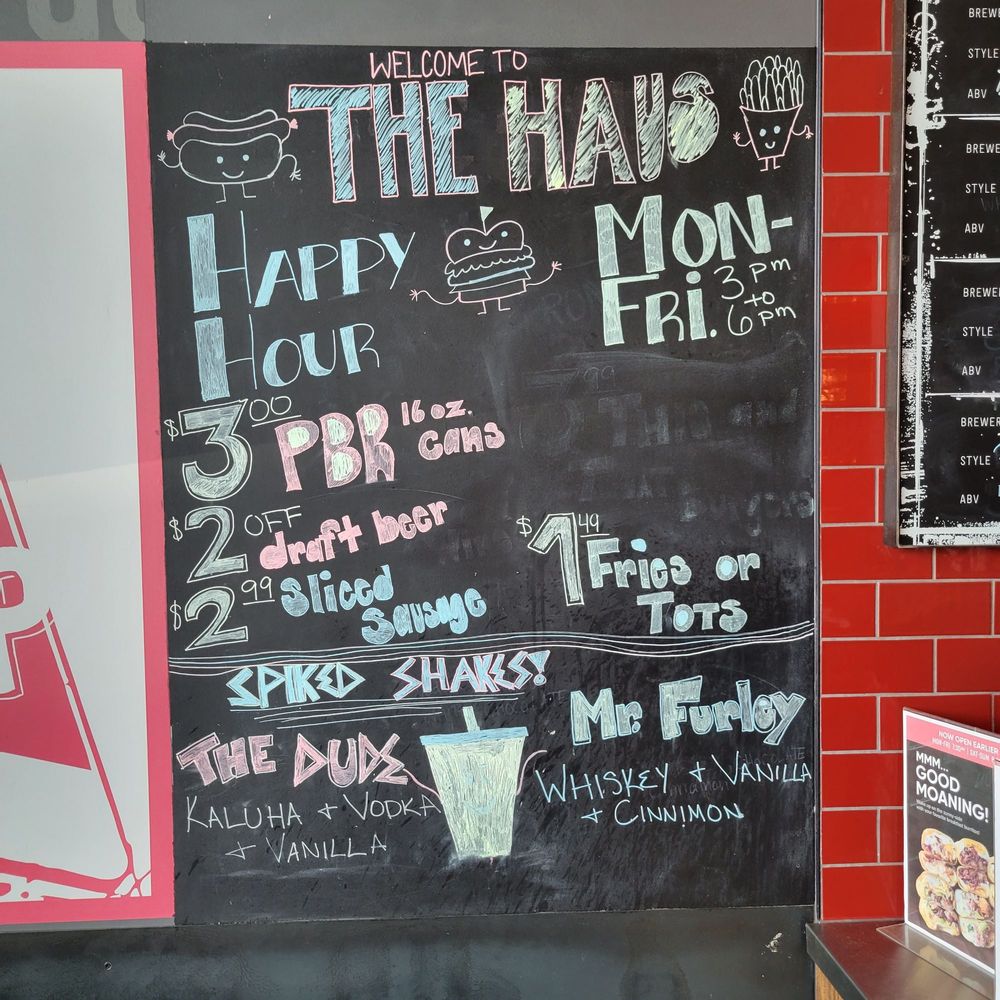 WELCOME TO
THE HAUS
HAPPY
HOUR
MON-
FRI. 3 pm
to
6 pm
$3.00 PBR 16 oz.
cans
$2 OFF
draft beer
$2.99 Sliced
Sausage
$1.49 Fries or
TOTS
SPIKED SHAKES!
THE DUDE
KALUHA + VODKA
+ VANILLA
Mr. Furley
WHISKEY + VANILLA
+ CINNIMON
BREWE
STYLE
ABV
BREWE
STYLE
ABV
BREWER
STYLE
ABV
BREWER
STYLE
ABV
NOW OPEN EARLIER
MMM...
GOOD
MOANING!